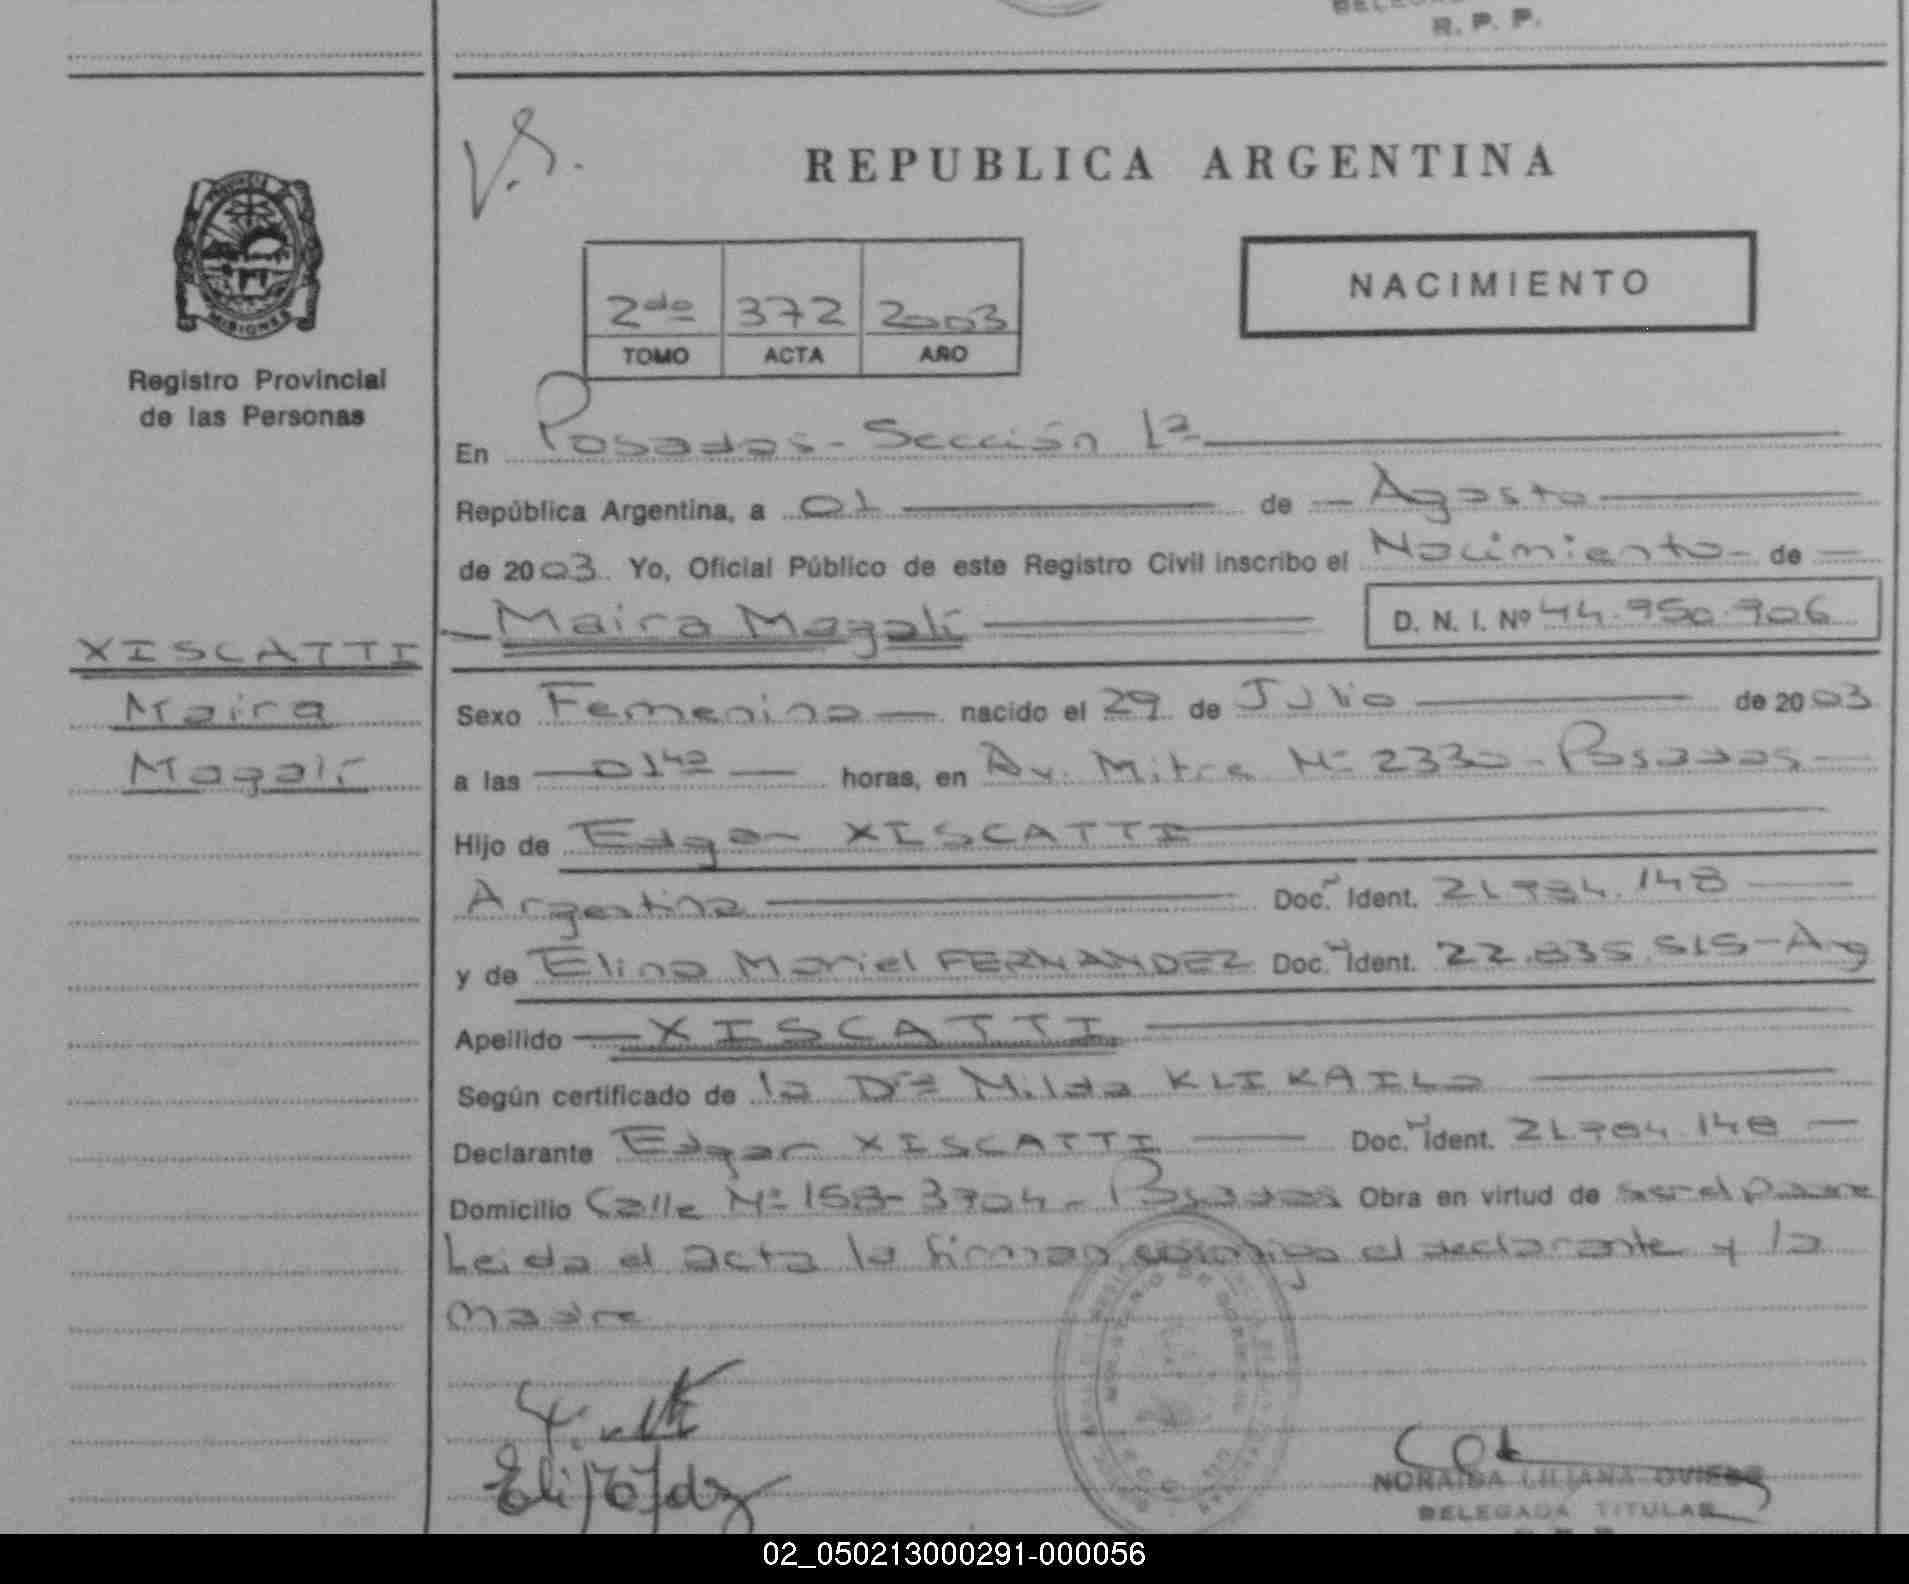 R. P. P.
V.S.
REPUBLICA ARGENTINA
NACIMIENTO
2do 372 2003
TOMO ACTA AÑO
PROVINCIA
MISIONES
Registro Provincial
de las Personas
En Posadas - Sección 1ª
República Argentina, a 01 de Agosto
de 2003. Yo, Oficial Público de este Registro Civil inscribo el Nacimiento de
Maira Magalí D. N. I. Nº 44.950.906
XISCATTI
Maira
Magalí
Sexo Femenino nacido el 29 de Julio de 2003
a las 01⁴⁰ horas, en Av. Mitre Nº 2330 - Posadas
Hijo de Edgar XISCATTI
Argentina Doc. Ident. 21.984.148
y de Elina Mariel FERNANDEZ Doc. Ident. 22.835.515 - Arg
Apellido XISCATTI
Según certificado de la Drª Milda KLIKAILO
Declarante Edgar XISCATTI Doc. Ident. 21.984.148
Domicilio Calle Nº 158 - 3704 - Posadas Obra en virtud de ser el padre
Leida el acta la firman conmigo el declarante y la
madre
NORAIDA LILIANA OVIEDO
DELEGADA TITULAR
02_050213000291-000056